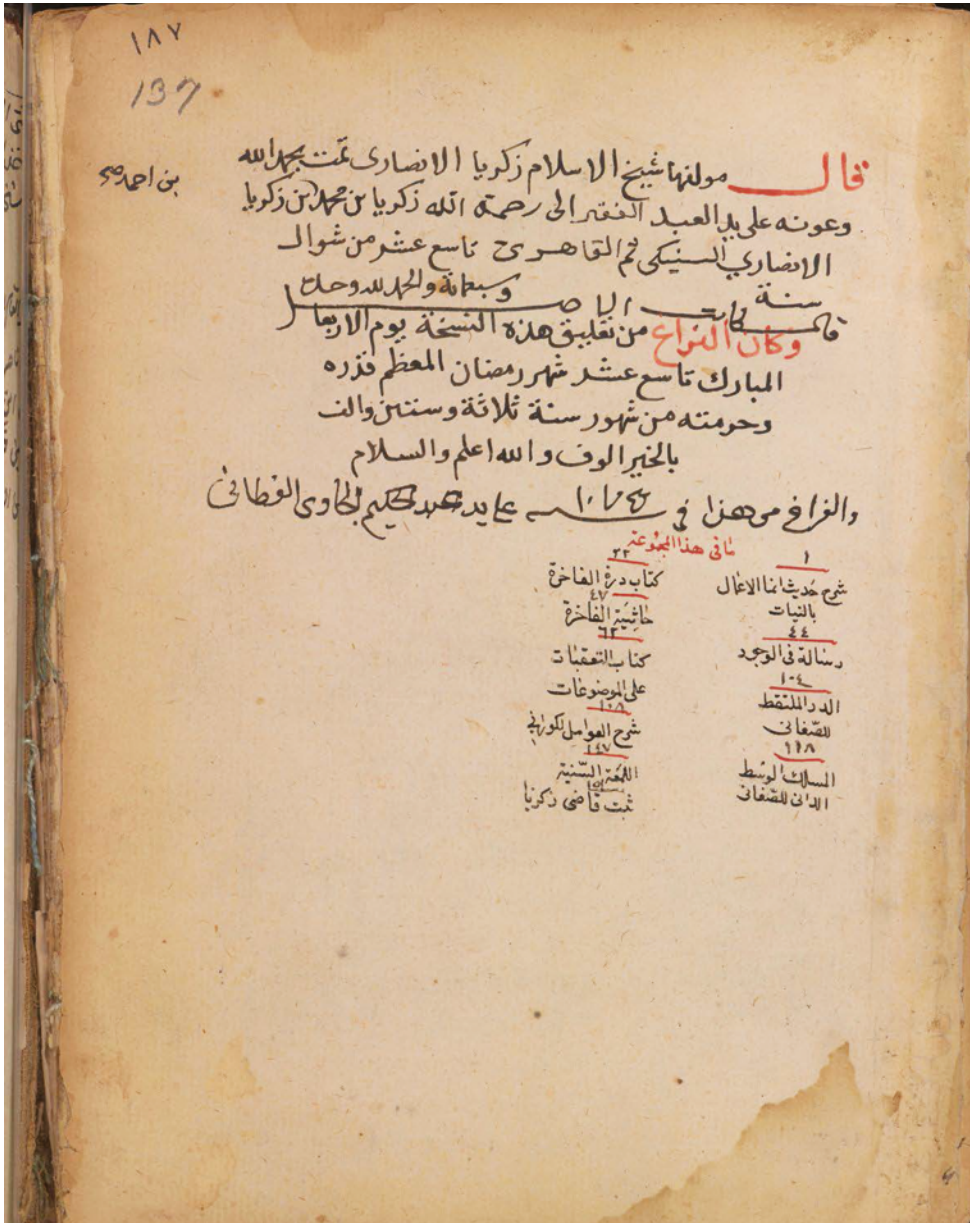 ١٨٧
137
قال مولفها شيخ الاسلام زكريا الانصارى تمت بحمد الله
وعونه على يد العبد الفقير الى رحمة الله زكريا بن محمد بن زكريا
بن احمد صح
الانصاري السنيكى ثم القاهرى تاسع عشر من شوال
سنة وسبعماية والحمد لله وحده
وكان الفراغ من تعليق هذه النسخة يوم الاربعا
المبارك تاسع عشر شهر رمضان المعظم قدره
وحرمته من شهور سنة ثلاثة وستين والف
بالخير الوف والله اعلم والسلام
والفراغ من هذا في
مافى هذا المجموعة
١
شرح حديث انما الاعمال
بالنيات
٤٤
رسالة فى الوجود
١٠٤
الدر الملتقط
للصغانى
١١٨
المسلك الوسط
الدانى للصغانى
٢٢
كتاب درة الفاخرة
٤٧
حاشية الفاخرة
٦٢
كتاب التعقبات
على الموضوعات
١٠٨
شرح العوامل لكورانى
١٤٧
اللمعة السنية
ثبت قاضى زكريا